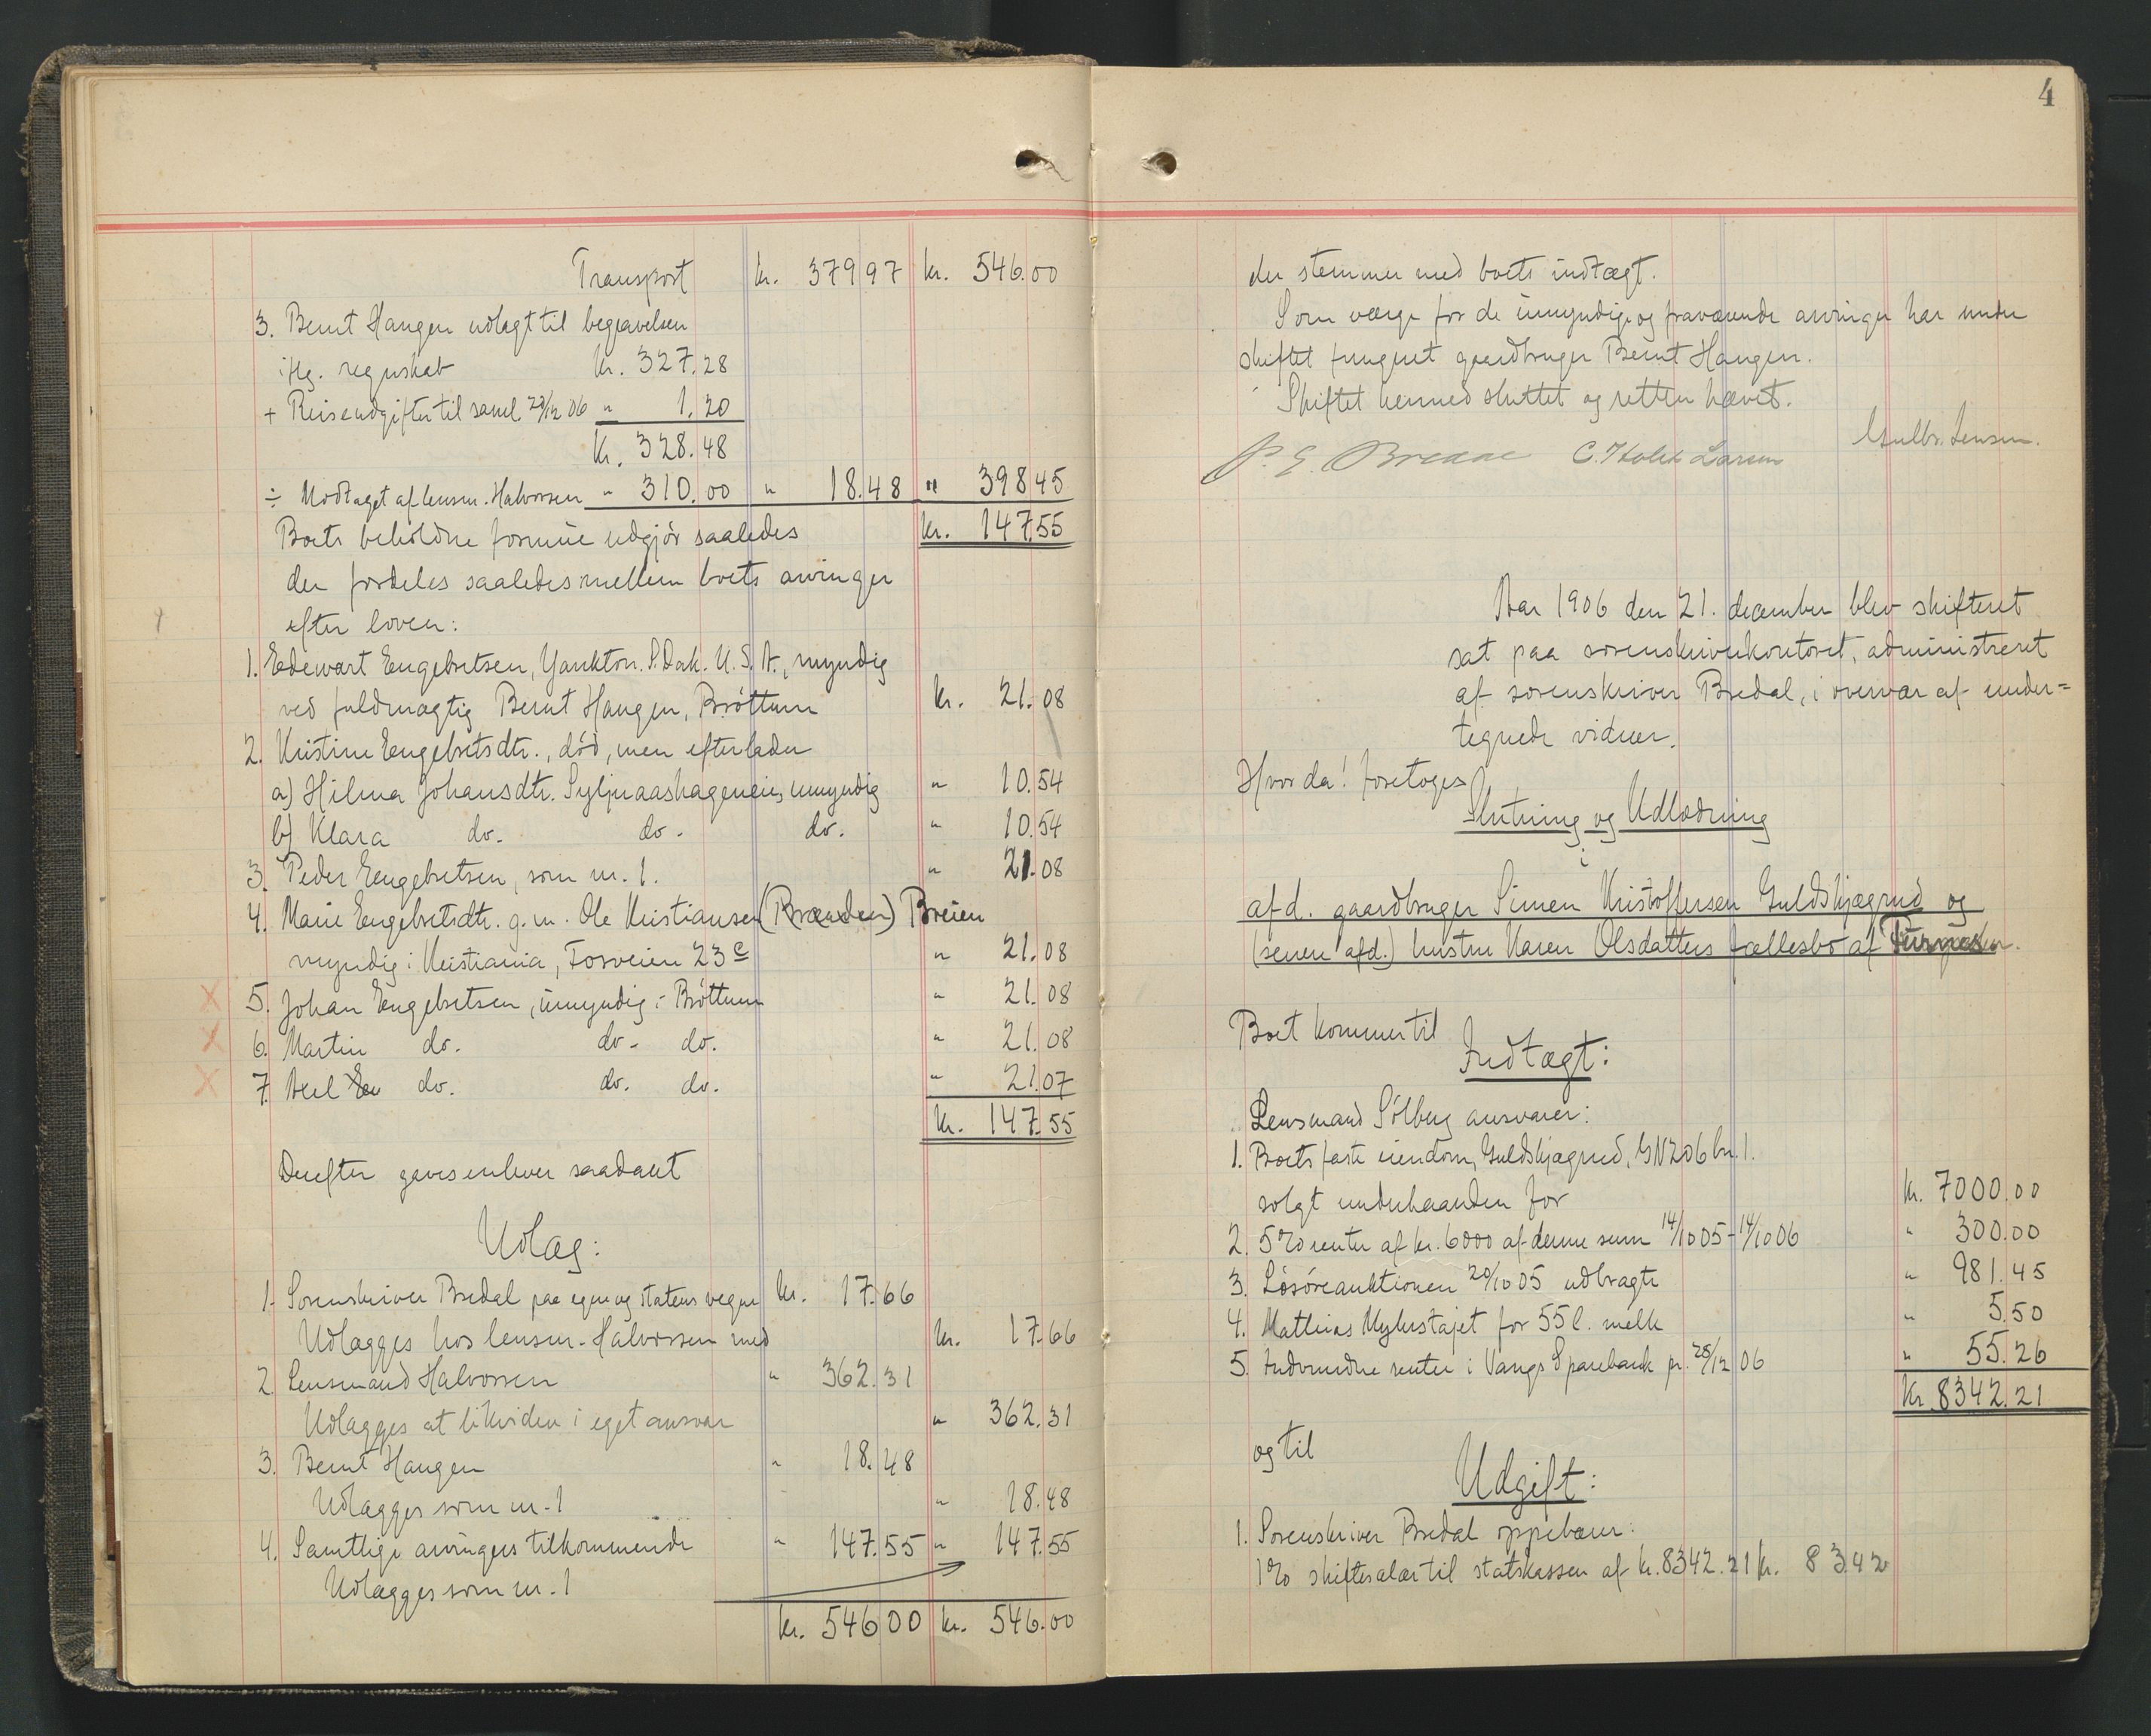 Transport kr. 379 97 kr. 546.00
3. Bernt Haugen udlagt til begravelsen
iflg. regnskab kr. 327.28
+ Reiseudgifter til saml 23/12 06 " 1.20
kr. 328.48
÷ Modtaget af lensm. Halvorsen " 310.00 " 18.48 " 398 45
Boets beholdne formue udgjør saaledes kr. 147.55
der fordeles saaledes mellem boets arvinger
efter loven:
1. Edewart Engebretsen, Yankton. S. Dak. U. S. A., myndig
ved fuldmægtig Bernt Haugen, Brøttum kr. 21.08
2. Kristine Engebretsdtr., død, men efterlader
a) Hilma Johansdtr. umyndig " 10.54
b) Klara do. do. do. " 10.54
3. Peder Engebretsen, som nr. 1. " 21.08
4. Marie Engebretsdtr. g. m. Ole Kristiansen (Brænden) Breien
myndig i Kristiania, Fosveien 23 c " 21.08
5. Johan Engebretsen, umyndig i Brøttum " 21.08
6. Martin do. do. do. " 21.08
7. Axel En do. do. do. " 21.07
kr. 147.55
Derefter gaves enhver saadant
Udlæg:
1. Sorenskriver Bredal paa egne og statens vegne kr. 17.66
Udlægges hos lensm. Halvorsen med kr. 17.66
2. Lensmand Halvorsen " 362.31
Udlægges at likvidere i eget ansvar " 362.31
3. Bernt Haugen " 18.48
Udlægges som nr. 1 " 18.48
4. Samtlige arvingers tilkommende " 147.55 " 147.55
Udlægges som nr. 1
kr. 546 00 kr. 546.00
4
der stemmer med boets indtægt.
Som værge for de umyndige og fraværende arvinger har under
skiftet fungeret gaardbruger Bernt Haugen.
Skiftet hermed sluttet og retten hævet.
C. Holst Larsen Gulbr. Jensen.
Aar 1906 den 21. december blev skifteret
sat paa sorenskriverkontoret, administreret
af sorenskriver Bredal, i overvær af under=
tegnede vidner.
Hvorda! foretoges
Slutning og Udlodning
i
afd. gaardbruger Simen Kristoffersen Guldskjægrud og
(senere afd.) hustru Karen Olsdatters fællesbo af Furnes.
Boet kommer til
Indtægt:
Lensmand Sølberg ansvarer:
1. Boets faste eiendom, Guldskjægrud, GN 206 bn. 1.
solgt underhaanden for kr. 7000.00
2. 5 % renter af kr. 6000 af denne sum 14/10 05 - 14/10 06 " 300.00
3. Løsøreauktionen 20/10 05 udbragte " 981.45
4. Mathias for 55 l. melk " 5.50
5. Indvundne renter i Vangs Sparebank pr. 28/12 06 " 55.26
kr. 8342.21
og til
Udgift:
1. Sorenskriver Bredal oppebærer:
1 % skiftesalær til statskassen af kr. 8342.21 kr. 83.42